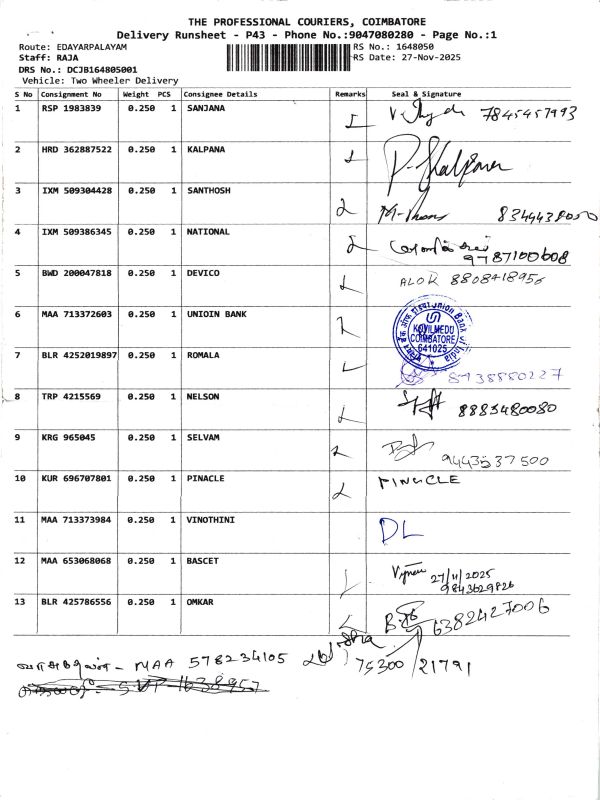 THE PROFESSIONAL COURIERS, COIMBATORE
Delivery Runsheet - P43 - Phone No.:9047080280 - Page No.:1
Route: EDAYARPALAYAM RS No.: 1648050
Staff: RAJA RS Date: 27-Nov-2025
DRS No.: DCJB164805001
Vehicle: Two Wheeler Delivery
S No Consignment No Weight PCS Consignee Details Remarks Seal & Signature
1 RSP 1983839 0.250 1 SANJANA 7845457993
2 HRD 362887522 0.250 1 KALPANA
3 IXM 509304428 0.250 1 SANTHOSH
4 IXM 509386345 0.250 1 NATIONAL 9787100608
5 BWD 200047818 0.250 1 DEVICO ALOK 8808418956
6 MAA 713372603 0.250 1 UNIOIN BANK
Union Bank of India KOVILMEDU COIMBATORE 641025
7 BLR 4252019897 0.250 1 ROMALA
8 TRP 4215569 0.250 1 NELSON 8883480080
9 KRG 965045 0.250 1 SELVAM 9443537500
10 KUR 696707801 0.250 1 PINACLE PINACLE
11 MAA 713373984 0.250 1 VINOTHINI DL
12 MAA 653068068 0.250 1 BASCET 27/11/2025
9843629826
13 BLR 425786556 0.250 1 OMKAR 6382427006
MAA 578234105 75300/21791